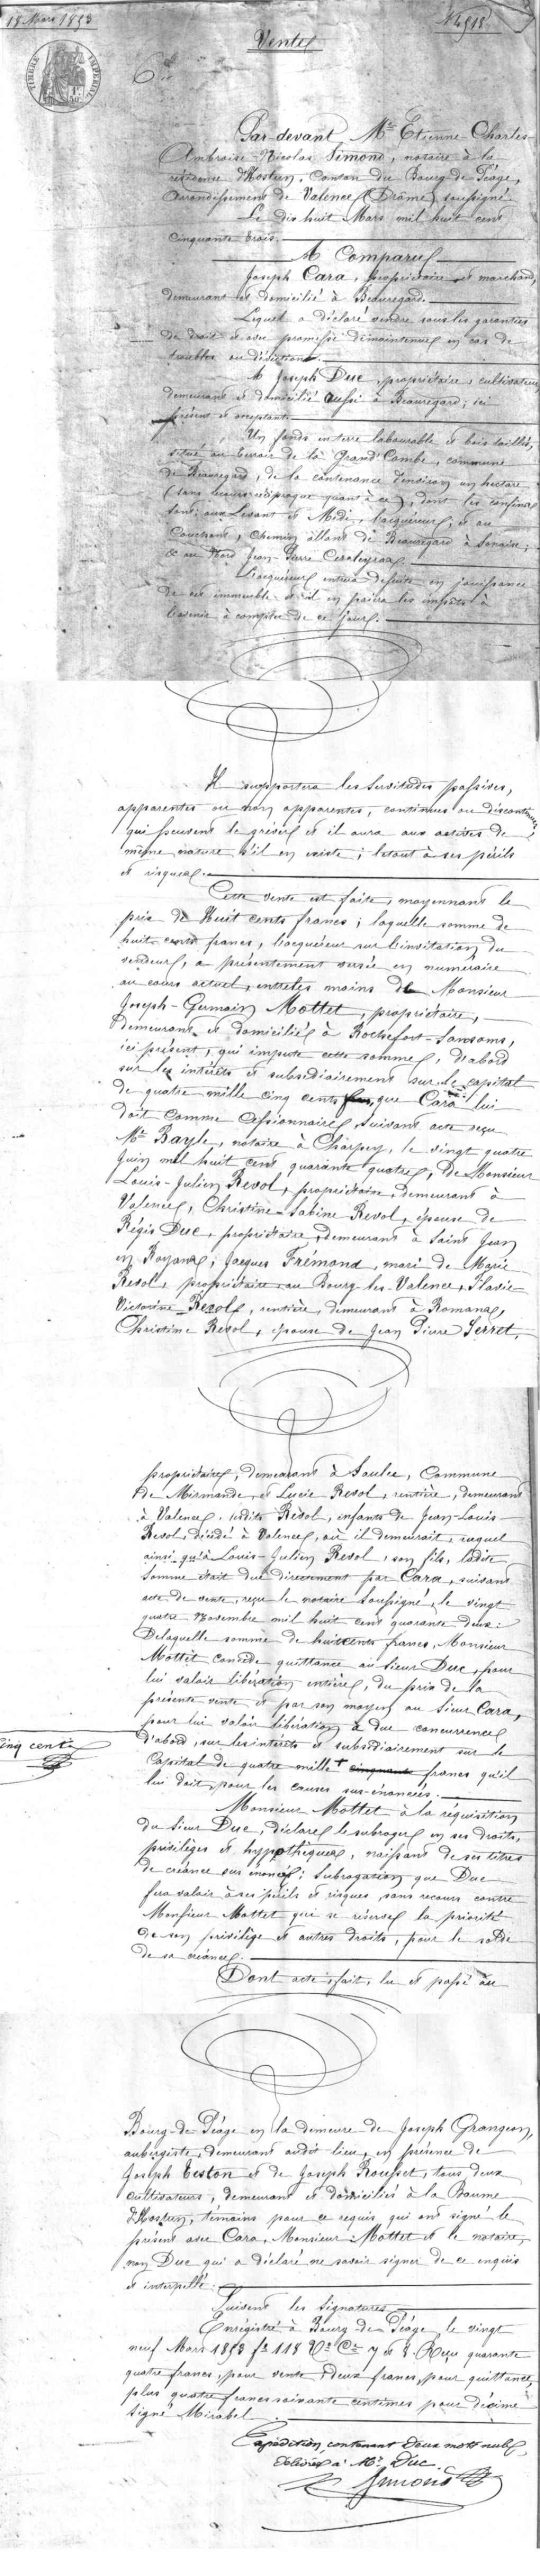 18 Mars 1853
N° 4518
Vente
TIMBRE IMPERIAL
Par-devant Me Etienne Charles-
Ambroise-Nicolas Simond, notaire à la
résidence d'Hostun, Canton du Bourg de Péage,
Arrondissement de Valence (Drôme) soussigné
Le dix huit Mars mil huit cent
cinquante trois.
A Comparu
Joseph Cara, propriétaire et marchand,
demeurant et domicilié à Beauregard.
Lequel a déclaré vendre sous les garanties
de droit et avec promesse de maintenue en cas de
troubles ou d'éviction.
A Joseph Duc, propriétaire, cultivateur,
demeurant et domicilié aussi à Beauregard; ici
présent et acceptant
Un fonds en terre labourable et bois taillis,
situé au terroir de la Grand'Combe, commune
de Beauregard, de la contenance d'environ un hectare
(sans recours réciproque quant à ce), dont les confins
sont: aux Levant et Midi, l'acquéreur, et au
Couchant, Chemin allant de Beauregard à ;
& au Nord Jean-Pierre
L'acquéreur entrera de suite en jouissance
de cet immeuble et il en paiera les impôts à
l'avenir à compter de ce jour.
Il supportera les servitudes passives,
apparentes ou non apparentes, continues ou discontinues,
qui peuvent le grever et il aura aux actives de
même nature s'il en existe; le tout à ses périls
et risques.
Cette vente est faite, moyennant le
prix de Huit cents francs; laquelle somme de
huit cents francs, l'acquéreur sur l'invitation du
vendeur, a présentement versée en numéraire
au cours actuel, entre les mains de Monsieur
Joseph-Germain Mottet, propriétaire,
demeurant et domicilié à Rochefort-Sansons,
ici présent, qui impute cette somme, d'abord
sur les intérêts et subsidiairement sur le capital
de quatre mille cinq cents que Cara lui
doit comme Cessionnaire, suivant acte reçu
Me Bayle, notaire à Charpey, le vingt quatre
Juin mil huit cent quarante quatre, De Monsieur
Louis-Julien Revol, propriétaire, demeurant à
Valence, Christine-Sabine Revol, épouse de
Régis Duc, propriétaire, demeurant à Saint Jean
en Royans, Jacques Frémond, mari de Marie
Revol, propriétaire au Bourg-les-Valence, Flavie
Victorine Revol, rentière, demeurant à Romans,
Christine Revol, épouse de Jean Pierre Serret,
propriétaire, demeurant à Saulce, Commune
de Mirmande, et Lucie Revol, rentière, demeurant
à Valence, lesdits Revol, enfants de Jean-Louis
Revol, décédé à Valence, où il demeurait, auquel
ainsi qu'à Louis-Julien Revol, son fils, ladite
somme était due directement par Cara, suivant
acte de vente, reçu le notaire soussigné, le vingt
quatre Novembre mil huit cent quarante deux:
De laquelle somme de huit cents francs, Monsieur
Mottet concède quittance au sieur Duc, pour
lui valoir libération entière, du prix de la
présente vente et par son moyen au Sieur Cara,
pour lui valoir libération à due concurrence
d'abord, sur les intérêts et subsidiairement sur le
Capital de quatre mille + cinquante francs qu'il
cinq cents
lui doit, pour les causes sus-énoncées.
Monsieur Mottet à la réquisition
du Sieur Duc, déclare le subroger en ses droits,
privilèges et hypothèques, naissant de ses titres
de créance sus énoncés; Subrogation que Duc
fera valoir à ses périls et risques, sans recours contre
Monsieur Mottet qui se réserve la priorité
de son privilège et autres droits, pour le solde
de sa créance.
Dont acte, fait, lu et passé au
Bourg-de-Péage en la demeure de Joseph Grangeon,
aubergiste, demeurant audit lieu, en présence de
Joseph Teston et de Joseph Rousset, tous deux
cultivateurs, demeurant et domiciliés à la Baume
d'Hostun, témoins pour ce requis qui ont signé le
présent avec Cara, Monsieur Mottet et le notaire,
non Duc qui a déclaré ne savoir signer de ce enquis
et interpellé.
Suivent les Signatures
Enregistré à Bourg de Péage, le vingt
neuf Mars 1853 f° 118 V° Cse 7 et 8. Reçu quarante
quatre francs, pour vente, deux francs, pour quittance,
plus quatre francs soixante centimes pour décime
signé Mirabel.
Expédition contenant deux mots nuls
délivrée à Mr Duc.
Simond